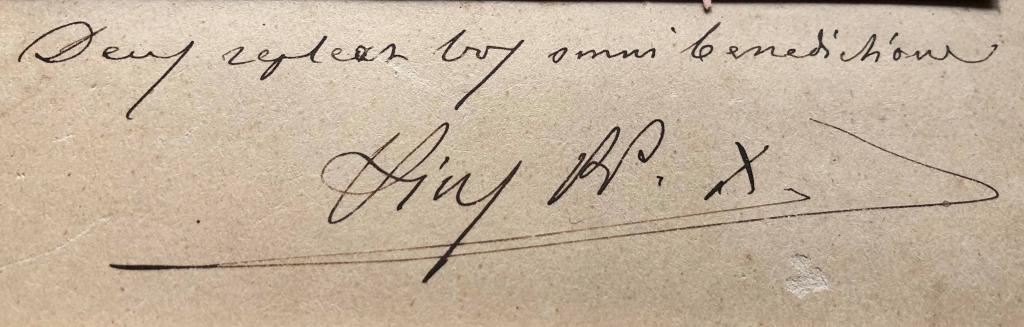 Deus repleat vos omni benedictione
Pius PP. X.